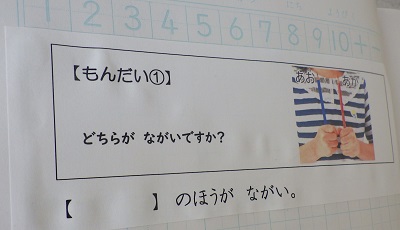 1 2 3 4 5 6 7 8 9 10 + -
【もんだい①】
あお あか
どちらが ながいですか?
【 】のほうが ながい。